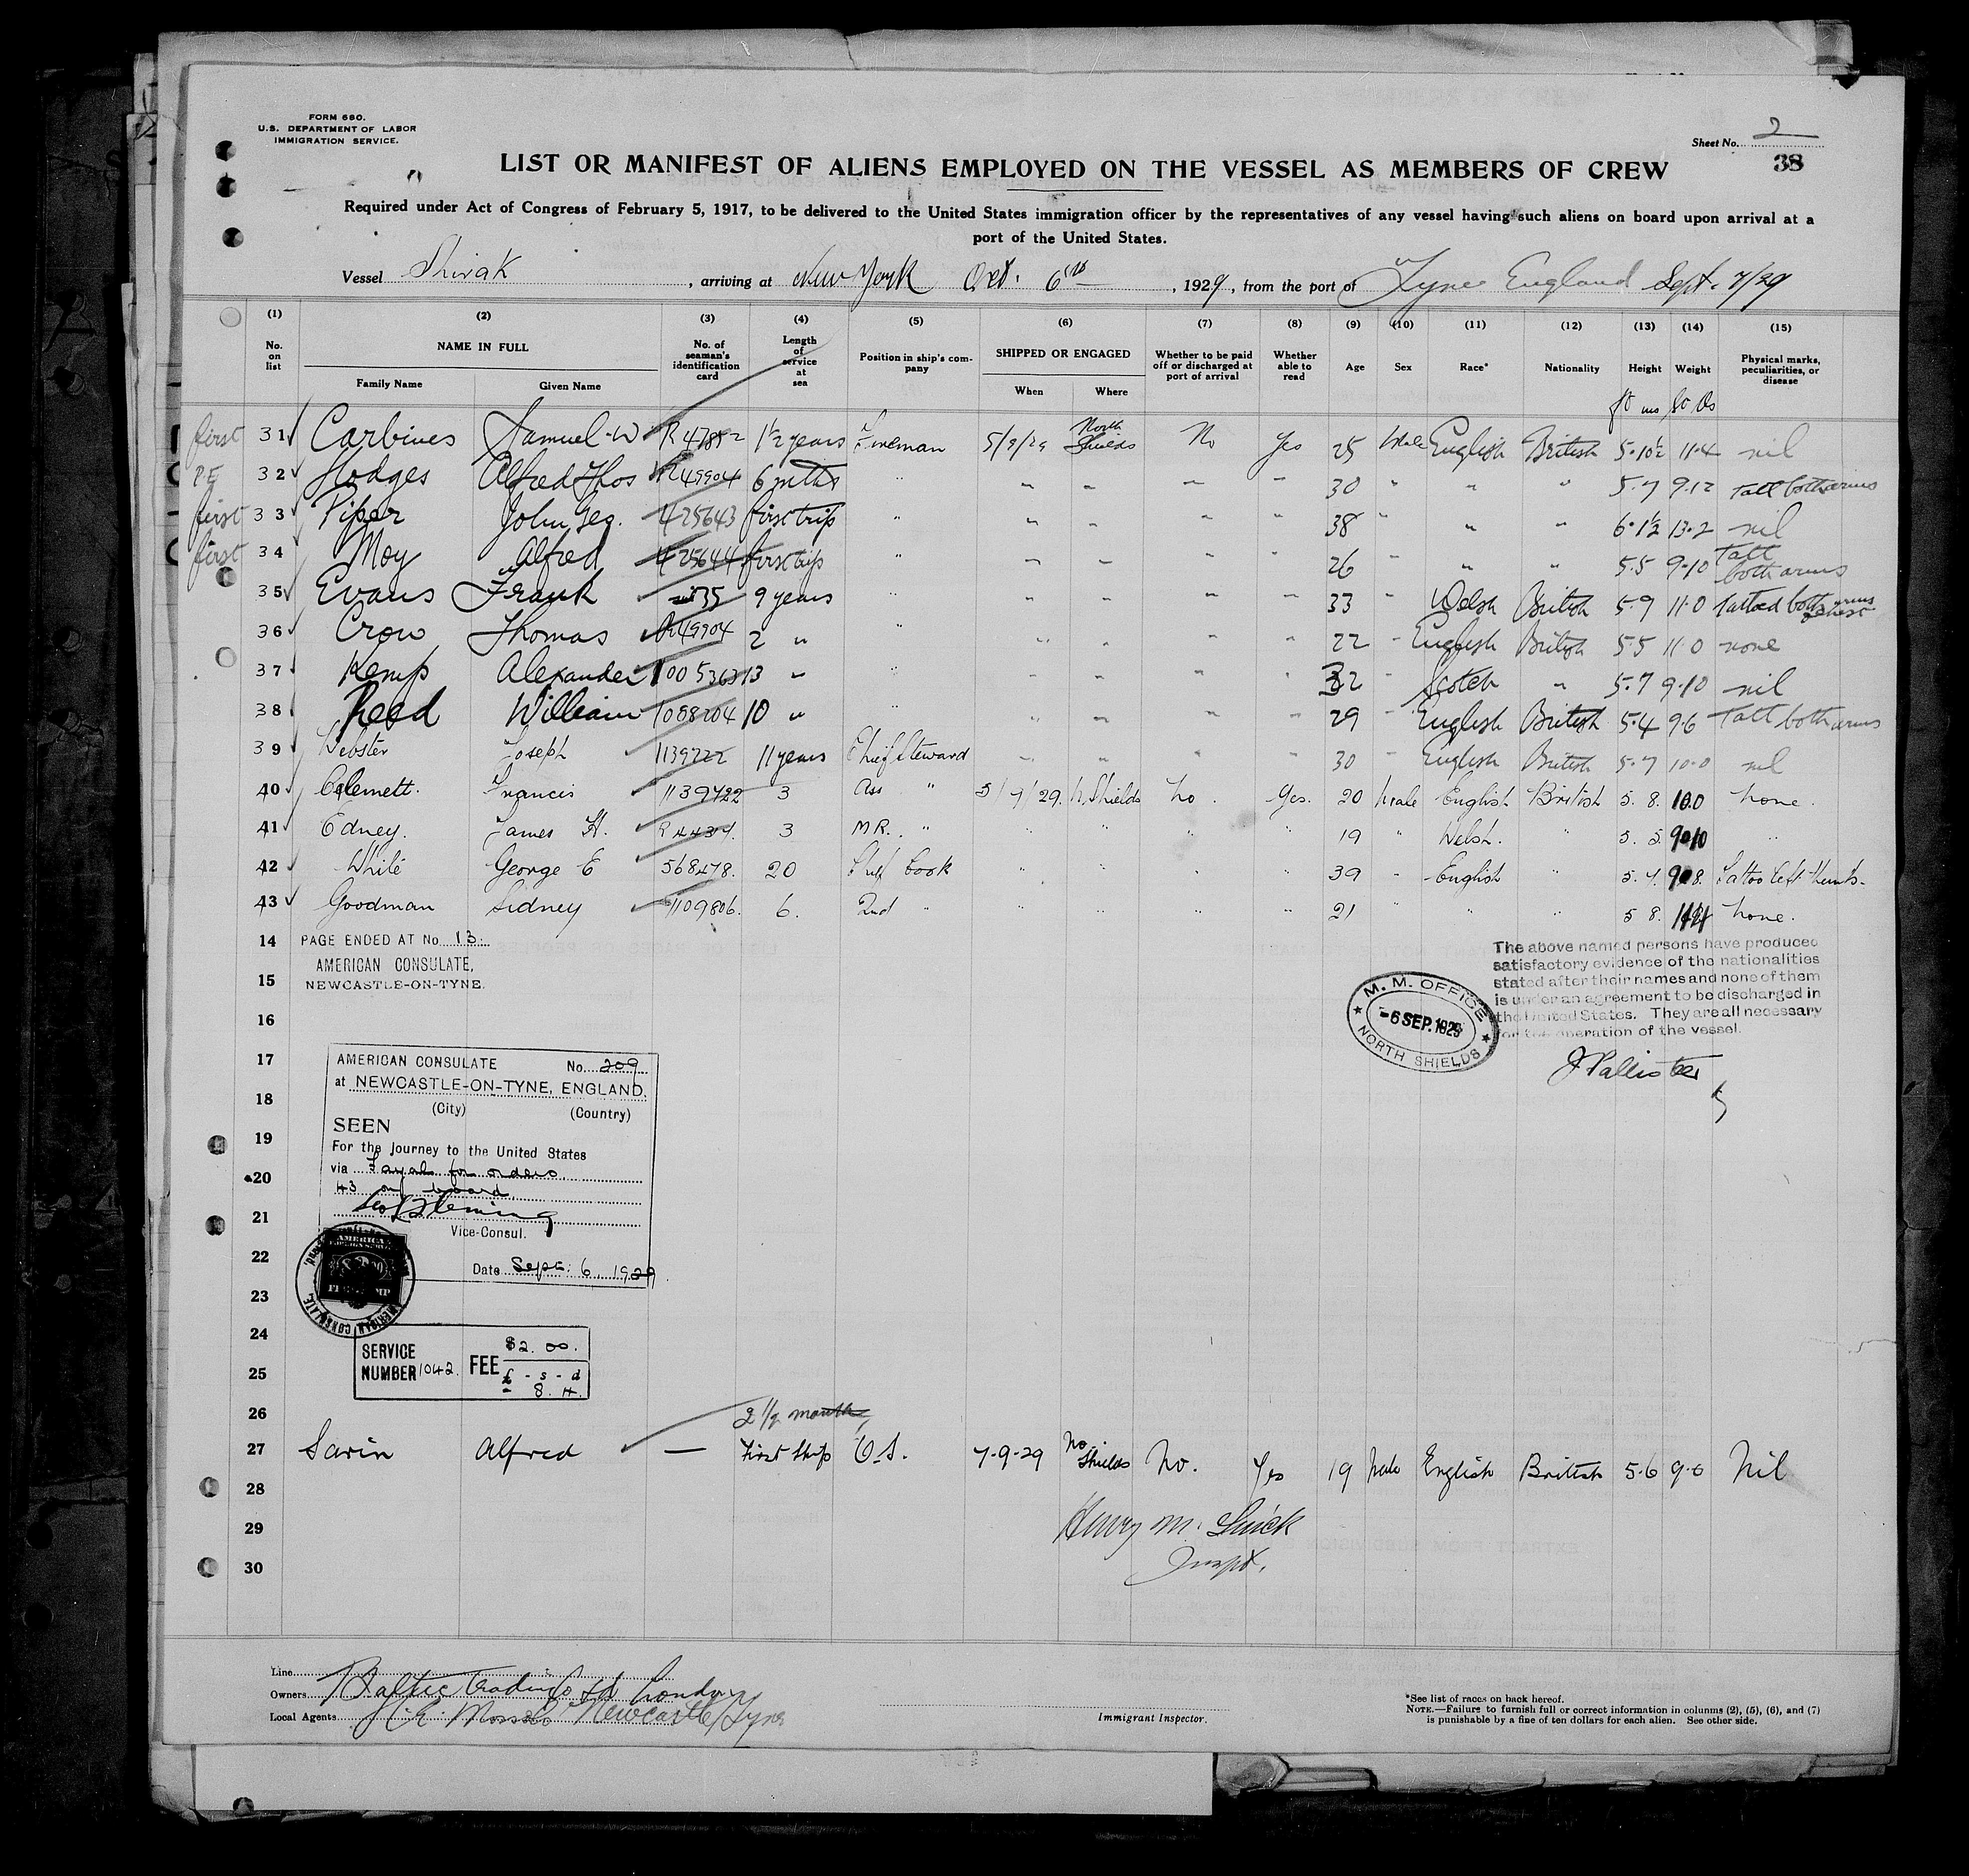 FORM 680.
U.S. DEPARTMENT OF LABOR
IMMIGRATION SERVICE.
Sheet No. 2
38
LIST OR MANIFEST OF ALIENS EMPLOYED ON THE VESSEL AS MEMBERS OF CREW
Required under Act of Congress of February 5, 1917, to be delivered to the United States immigration officer by the representatives of any vessel having such aliens on board upon arrival at a
port of the United States.
Vessel Shirak, arriving at New York Oct. 6th, 1929, from the port of Tyne England Sept. 7/29
(1) (2) (3) (4) (5) (6) (7) (8) (9) (10) (11) (12) (13) (14) (15)
No. on list NAME IN FULL Family Name Given Name No. of seaman's identification card Length of service at sea Position in ship's company SHIPPED OR ENGAGED When Where Whether to be paid off or discharged at port of arrival Whether able to read Age Sex Race* Nationality Height Weight Physical marks, peculiarities, or disease
first 31 Carbines Samuel W R 47852 1½ years Fireman 5/9/29 North Shields No Yes 25 Male English British 5.10½ 11.4 nil
32 Hodges Alfred Thos R49904 6 mths " " " " " 30 " " " 5.7 9.12 Tatt both arms
first 33 Piper John Geo. 425643 first trip " " " " " 38 " " " 6.1½ 13.2 nil
first 34 Moy Alfred 425644 first trip " " " " " 26 " " " 5.5 9.10 Tatt both arms
35 Evans Frank 9 years " " " " " 33 " Welsh British 5.9 11.0 Tattoed both arms chest
36 Crow Thomas R49904 2 " " " " " " 22 " English British 5.5 11.0 none
37 Kemp Alexander 1005363 13 " " " " " " 32 " Scotch " 5.7 9.10 nil
38 Reed William 1068204 10 " " " " " " 29 " English British 5.4 9.6 Tatt both arms
39 Webster Joseph 1139722 11 years Chief Steward " " " " 30 English British 5.7 10.0 nil
40 Clemett. Francis 1139422 3 Ass " 5/9/29. N. Shields No. Yes. 20 Male English British 5. 8. 10.0 None.
41 Edney. James H. R 44434. 3 M R. " " " " " 19 " Welsh. " 5. 5. 9.10 "
42 White George E 568478. 20 Chief Cook " " " " 39 " English " 5. 4. 9.8. Tattoo left thumb.
43 Goodman Sidney 1109806. 6. 2nd " " " " " 21 " " " 5 8. None.
14 PAGE ENDED AT No. 13.
AMERICAN CONSULATE,
15 NEWCASTLE-ON-TYNE.
The above named persons have produced
satisfactory evidence of the nationalities
stated after their names and none of them
is under an agreement to be discharged in
the United States. They are all necessary
for the operation of the vessel.
M. M. OFFICE
-6 SEP. 1929
NORTH SHIELDS
J Pallister
16
17
18
19
20
21
22
23
24
25
AMERICAN CONSULATE No. 209
at NEWCASTLE-ON-TYNE, ENGLAND.
(City) (Country)
SEEN
For the journey to the United States
via Fayal for orders
43 on board
Fleming
Vice-Consul.
Date Sept. 6, 1929
SERVICE NUMBER 1042. FEE $2.00.
£ - s - d
- 8. 4.
26 2 1/2 months
27 Sarin Alfred — First Ship O.S. 7-9-29 No. Shields No. Yes 19 Male English British 5.6 9.0 Nil
28
29 Henry M. Quick
30 Inspt.
Line
Owners Baltic Trading Co Ltd London
Local Agents H.E. Moss & Co Newcastle/Tyne
Immigrant Inspector.
*See list of races on back hereof.
NOTE.—Failure to furnish full or correct information in columns (2), (5), (6), and (7)
is punishable by a fine of ten dollars for each alien. See other side.